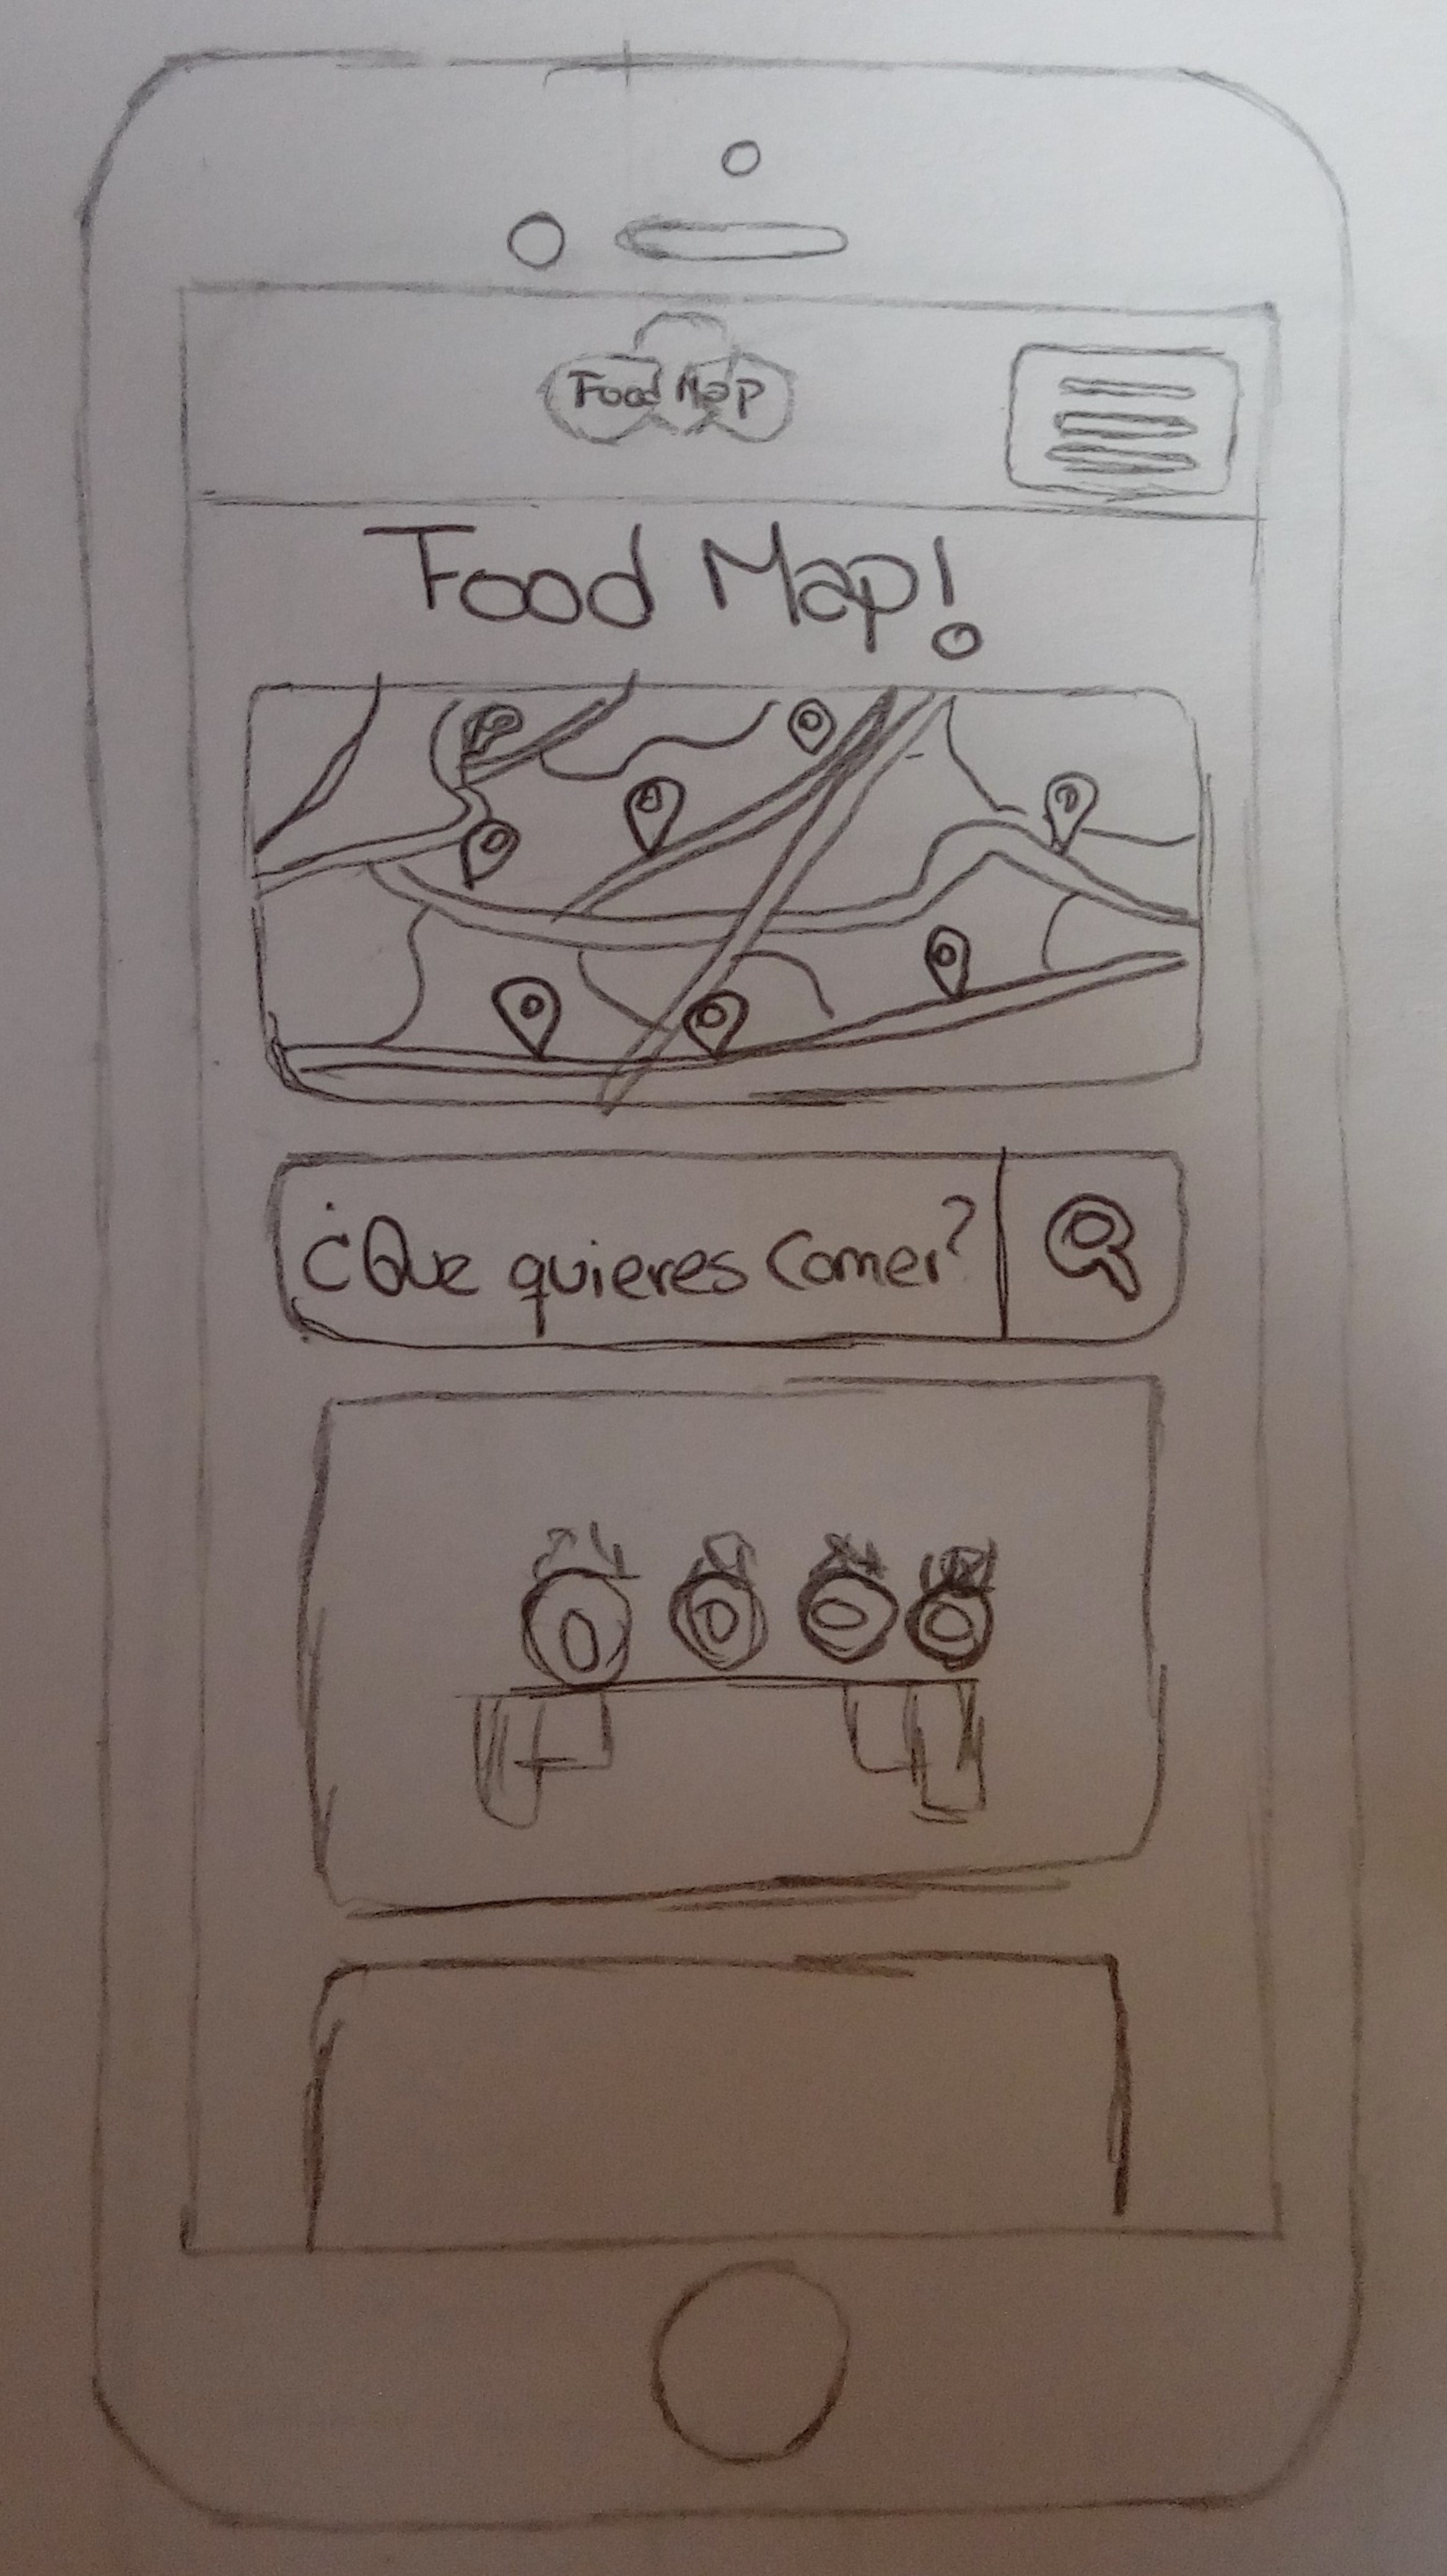 Food Map
Food Map!
¿Que quieres Comer?